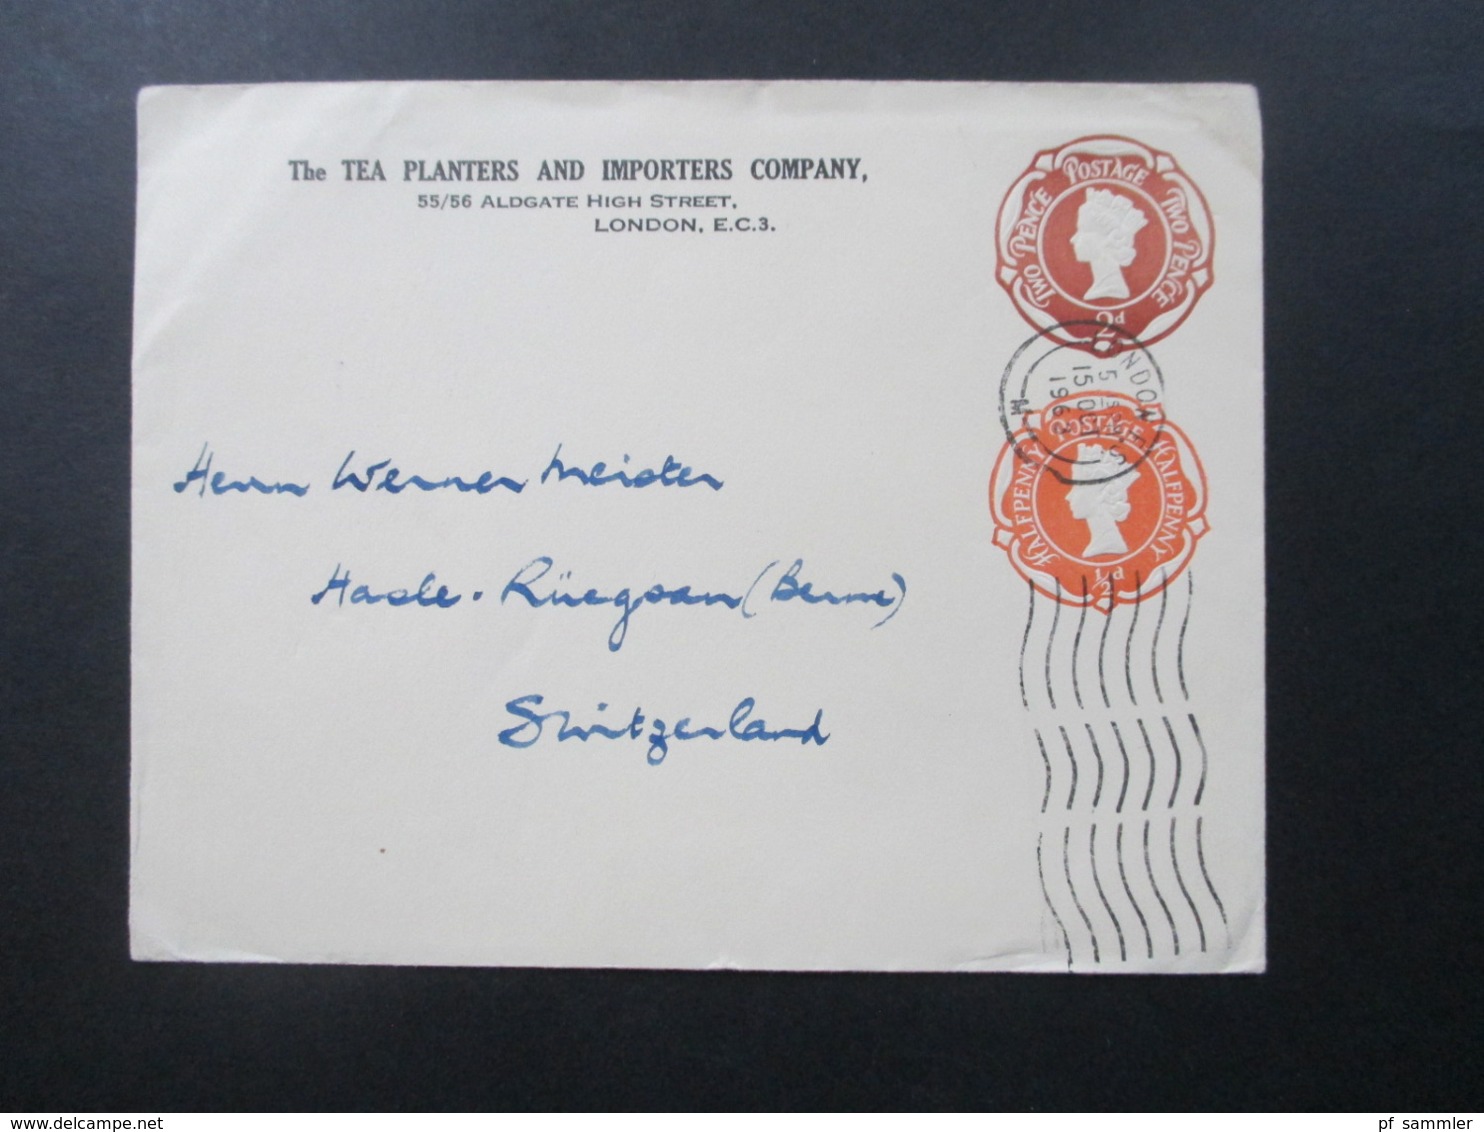 The TEA PLANTERS AND IMPORTERS COMPANY,
55/56 ALDGATE HIGH STREET,
LONDON, E.C.3.
TWO PENCE POSTAGE TWO PENCE
2d
LONDON
15 OCT
HALFPENNY POSTAGE HALFPENNY
½d
Herrn Werner Meister
Hasle-Rüegsau (Berne)
Switzerland
© www.delcampe.net
pf_sammler